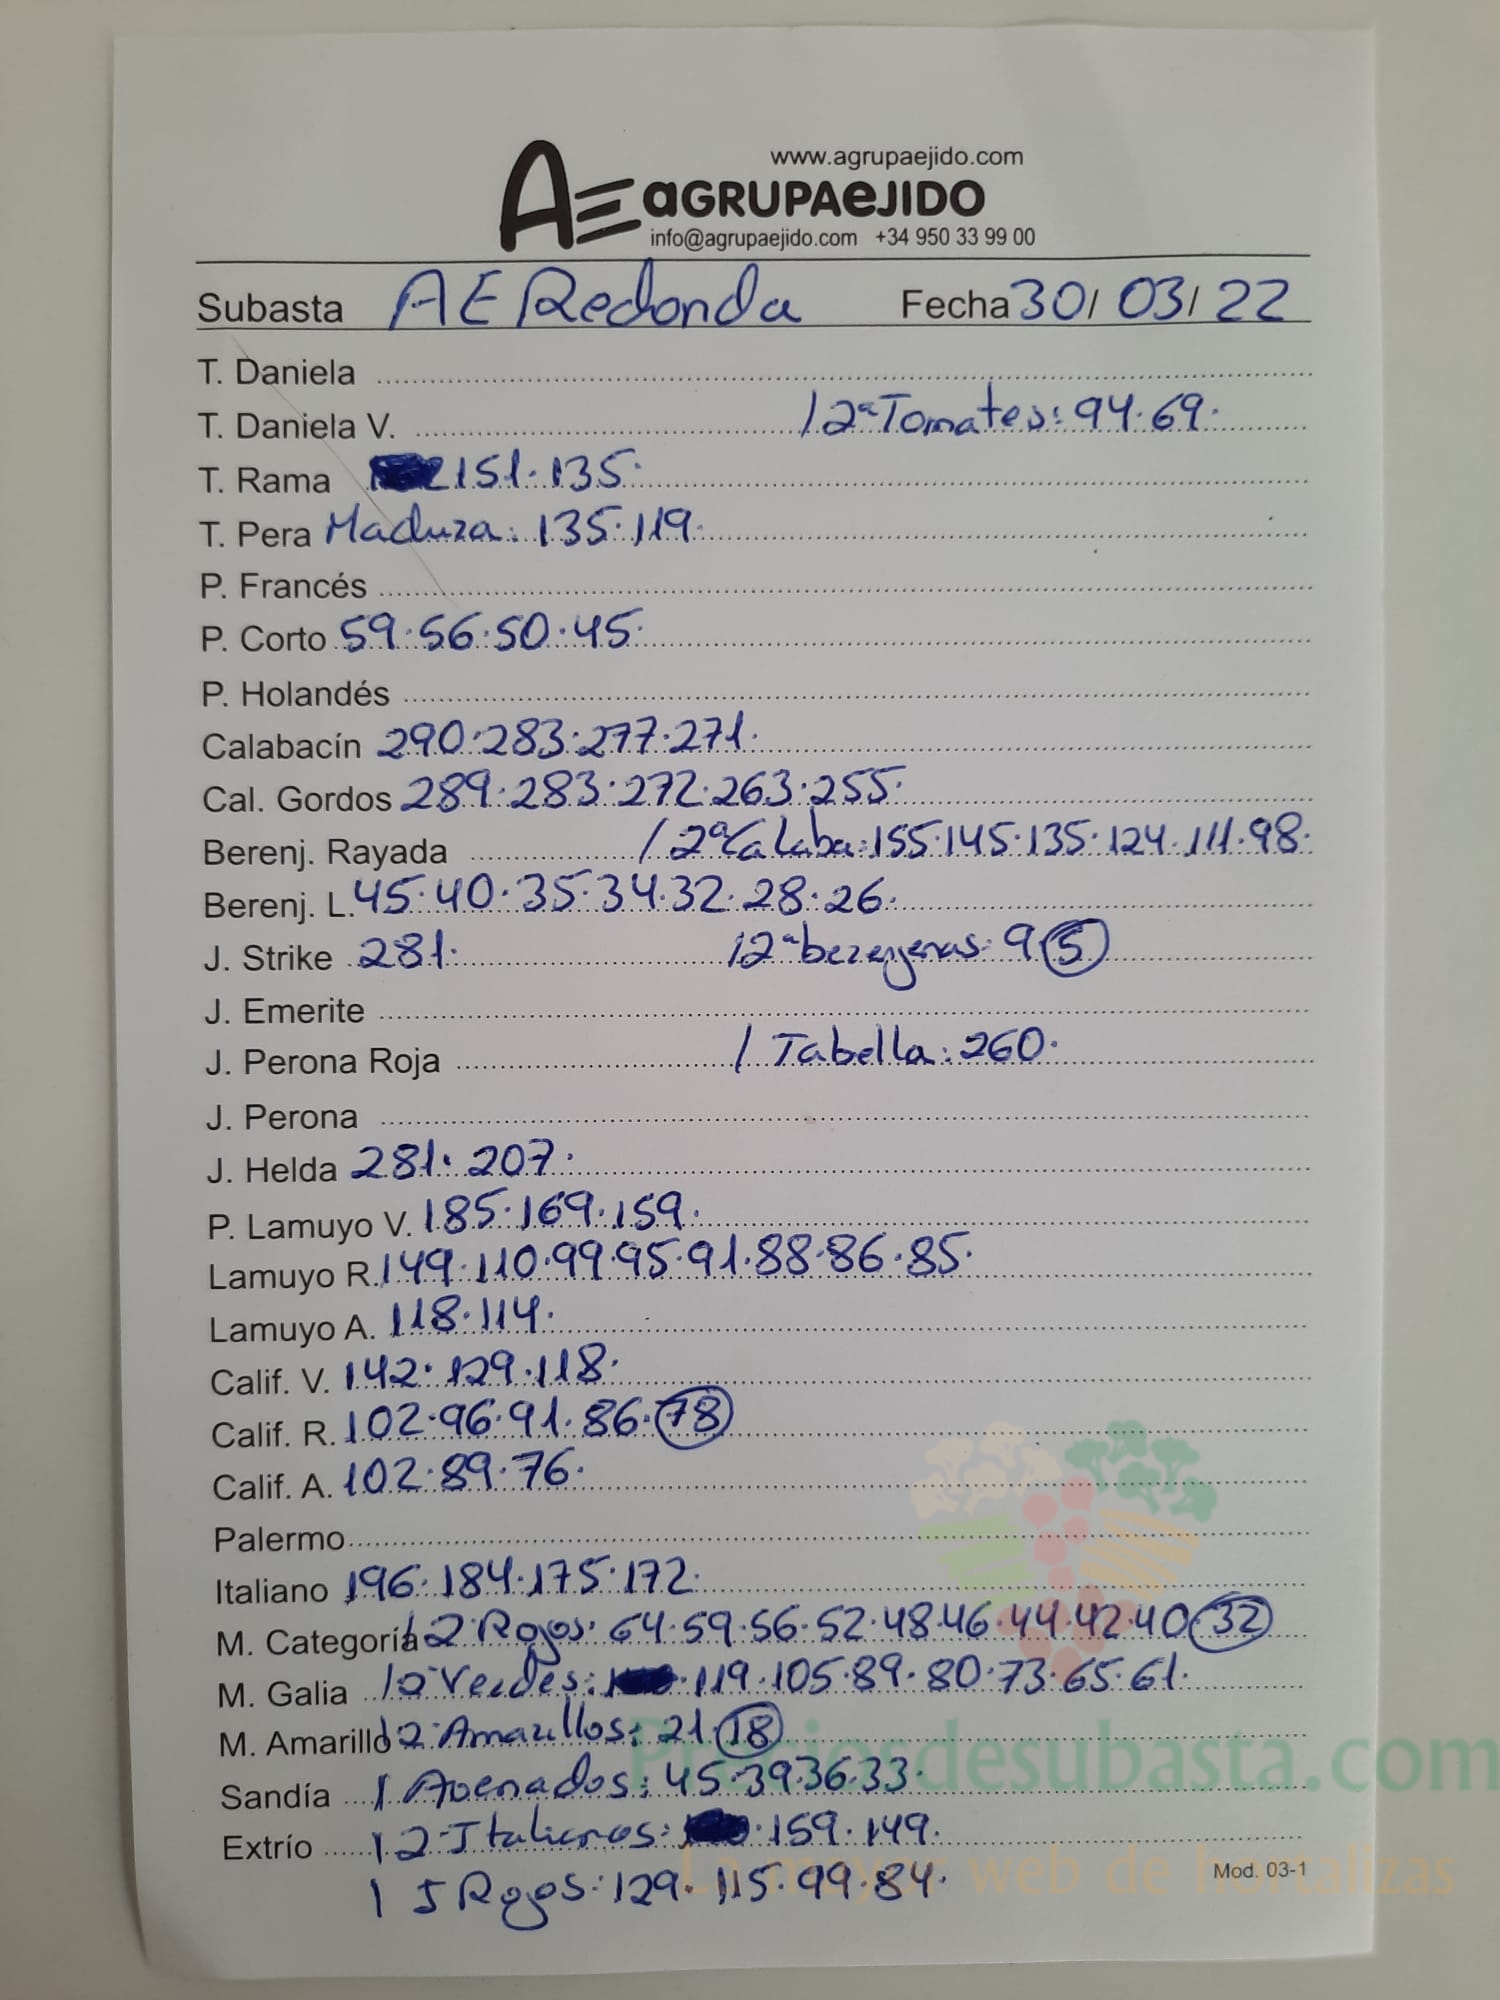 www.agrupaejido.com
AE aGRUPAeJIDO
info@agrupaejido.com +34 950 33 99 00
Subasta AE Redonda Fecha 30/ 03/ 22
T. Daniela
T. Daniela V. / 2ª Tomates: 94.69.
T. Rama 151.135.
T. Pera Madura: 135.119.
P. Francés
P. Corto 59.56.50.45.
P. Holandés
Calabacín 290.283.277.271.
Cal. Gordos 289.283.272.263.255.
Berenj. Rayada / 2ª Calaba: 155.145.135.124.111.98.
Berenj. L. 45.40.35.34.32.28.26.
J. Strike 281. / 2ª berenjenas: 9 5
J. Emerite
J. Perona Roja / Tabella: 260.
J. Perona
J. Helda 281. 207.
P. Lamuyo V. 185.169.159.
Lamuyo R. 149.110.99.95.91.88.86.85.
Lamuyo A. 118.114.
Calif. V. 142.129.118.
Calif. R. 102.96.91.86.78
Calif. A. 102.89.76.
Palermo
Italiano 196.184.175.172.
M. Categoría / 2 Rojos: 64.59.56.52.48.46.44.42.40 32
M. Galia / 2 Verdes: 119.105.89.80.73.65.61.
M. Amarillo / 2 Amarillos: 21.18
Sandía / Asenados: 45.39.36.33.
Extrío / 2 Italianos: 159.149.
/ I Rojos: 129.115.99.84.
Mod. 03-1
Preciosdesubasta.com
La mayor web de hortalizas